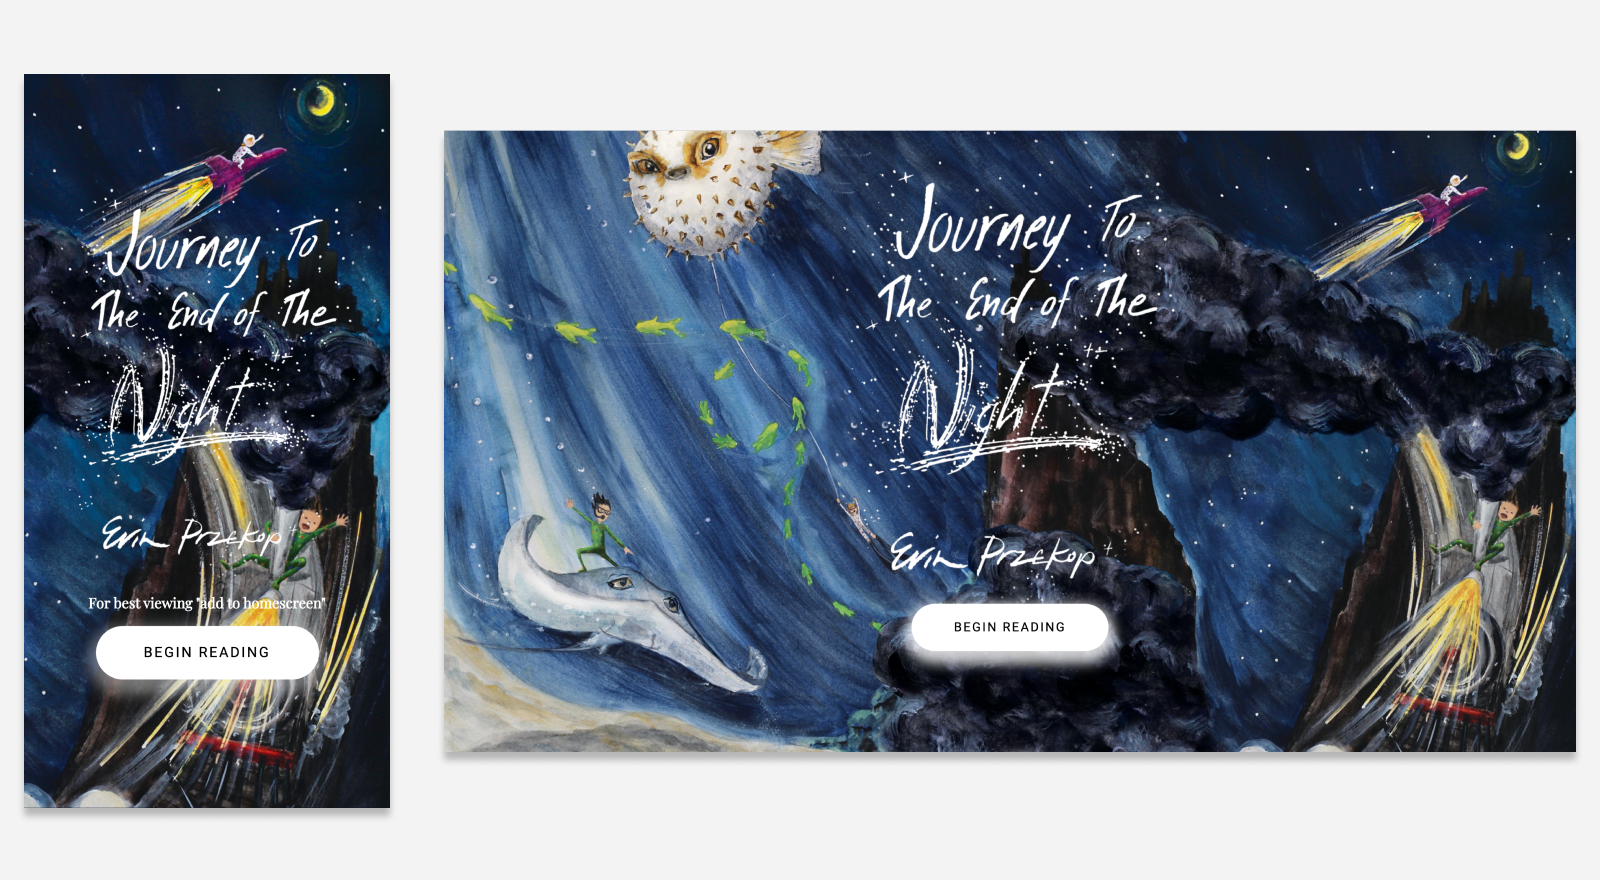 Journey To
The End of The
Night
Erin Przekop
For best viewing "add to homescreen"
BEGIN READING
Journey To
The End of The
Night
Erin Przekop
BEGIN READING